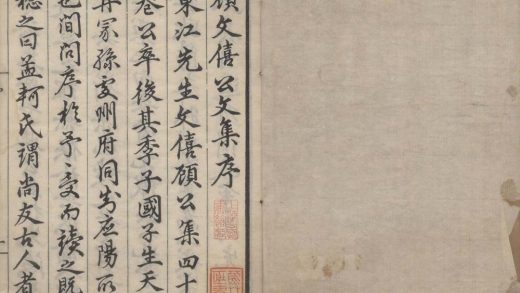 顧文僖公文集序
東江先生文僖顧公集四十
卷公卒後其季子國子生天
冢孫處州府同應陽所
也間問序於予〻受而讀之既
之曰孟軻氏謂尚友古人者